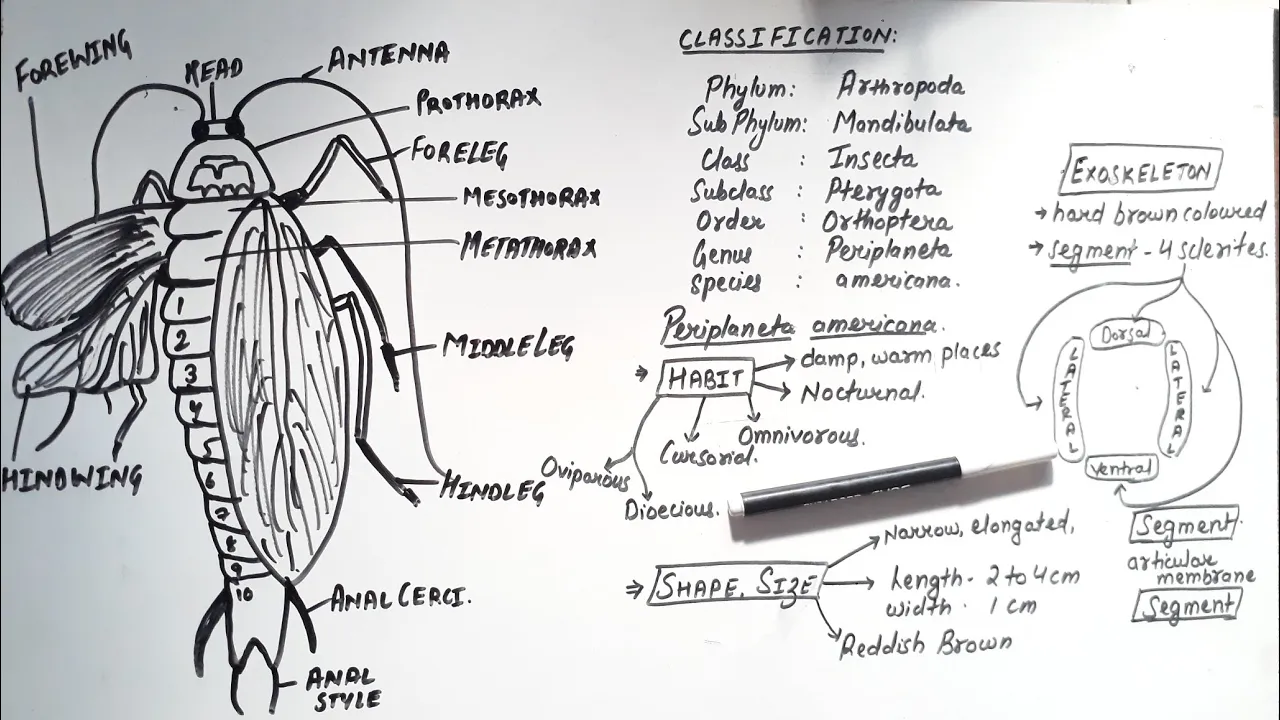 FOREWING
HEAD
ANTENNA
PROTHORAX
FORELEG
MESOTHORAX
METATHORAX
1
2
3
4
5
6
7
8
9
10
MIDDLELEG
HINDWING
HINDLEG
ANAL CERCI.
ANAL
STYLE
CLASSIFICATION:
Phylum: Arthropoda
Sub Phylum: Mandibulata
Class : Insecta
Subclass : Pterygota
Order : Orthoptera
Genus : Periplaneta
Species : americana.
Periplaneta americana.
⇒ HABIT
→ damp, warm places
→ Nocturnal.
Omnivorous.
Cursorial.
Oviparous
Dioecious.
⇒ SHAPE, SIZE
Narrow, elongated,
Length - 2 to 4 cm
width - 1 cm
Reddish Brown
EXOSKELETON
→ hard brown coloured
→ segment - 4 sclerites.
Dorsal
LATERAL
LATERAL
Ventral
Segment
articular
membrane
Segment